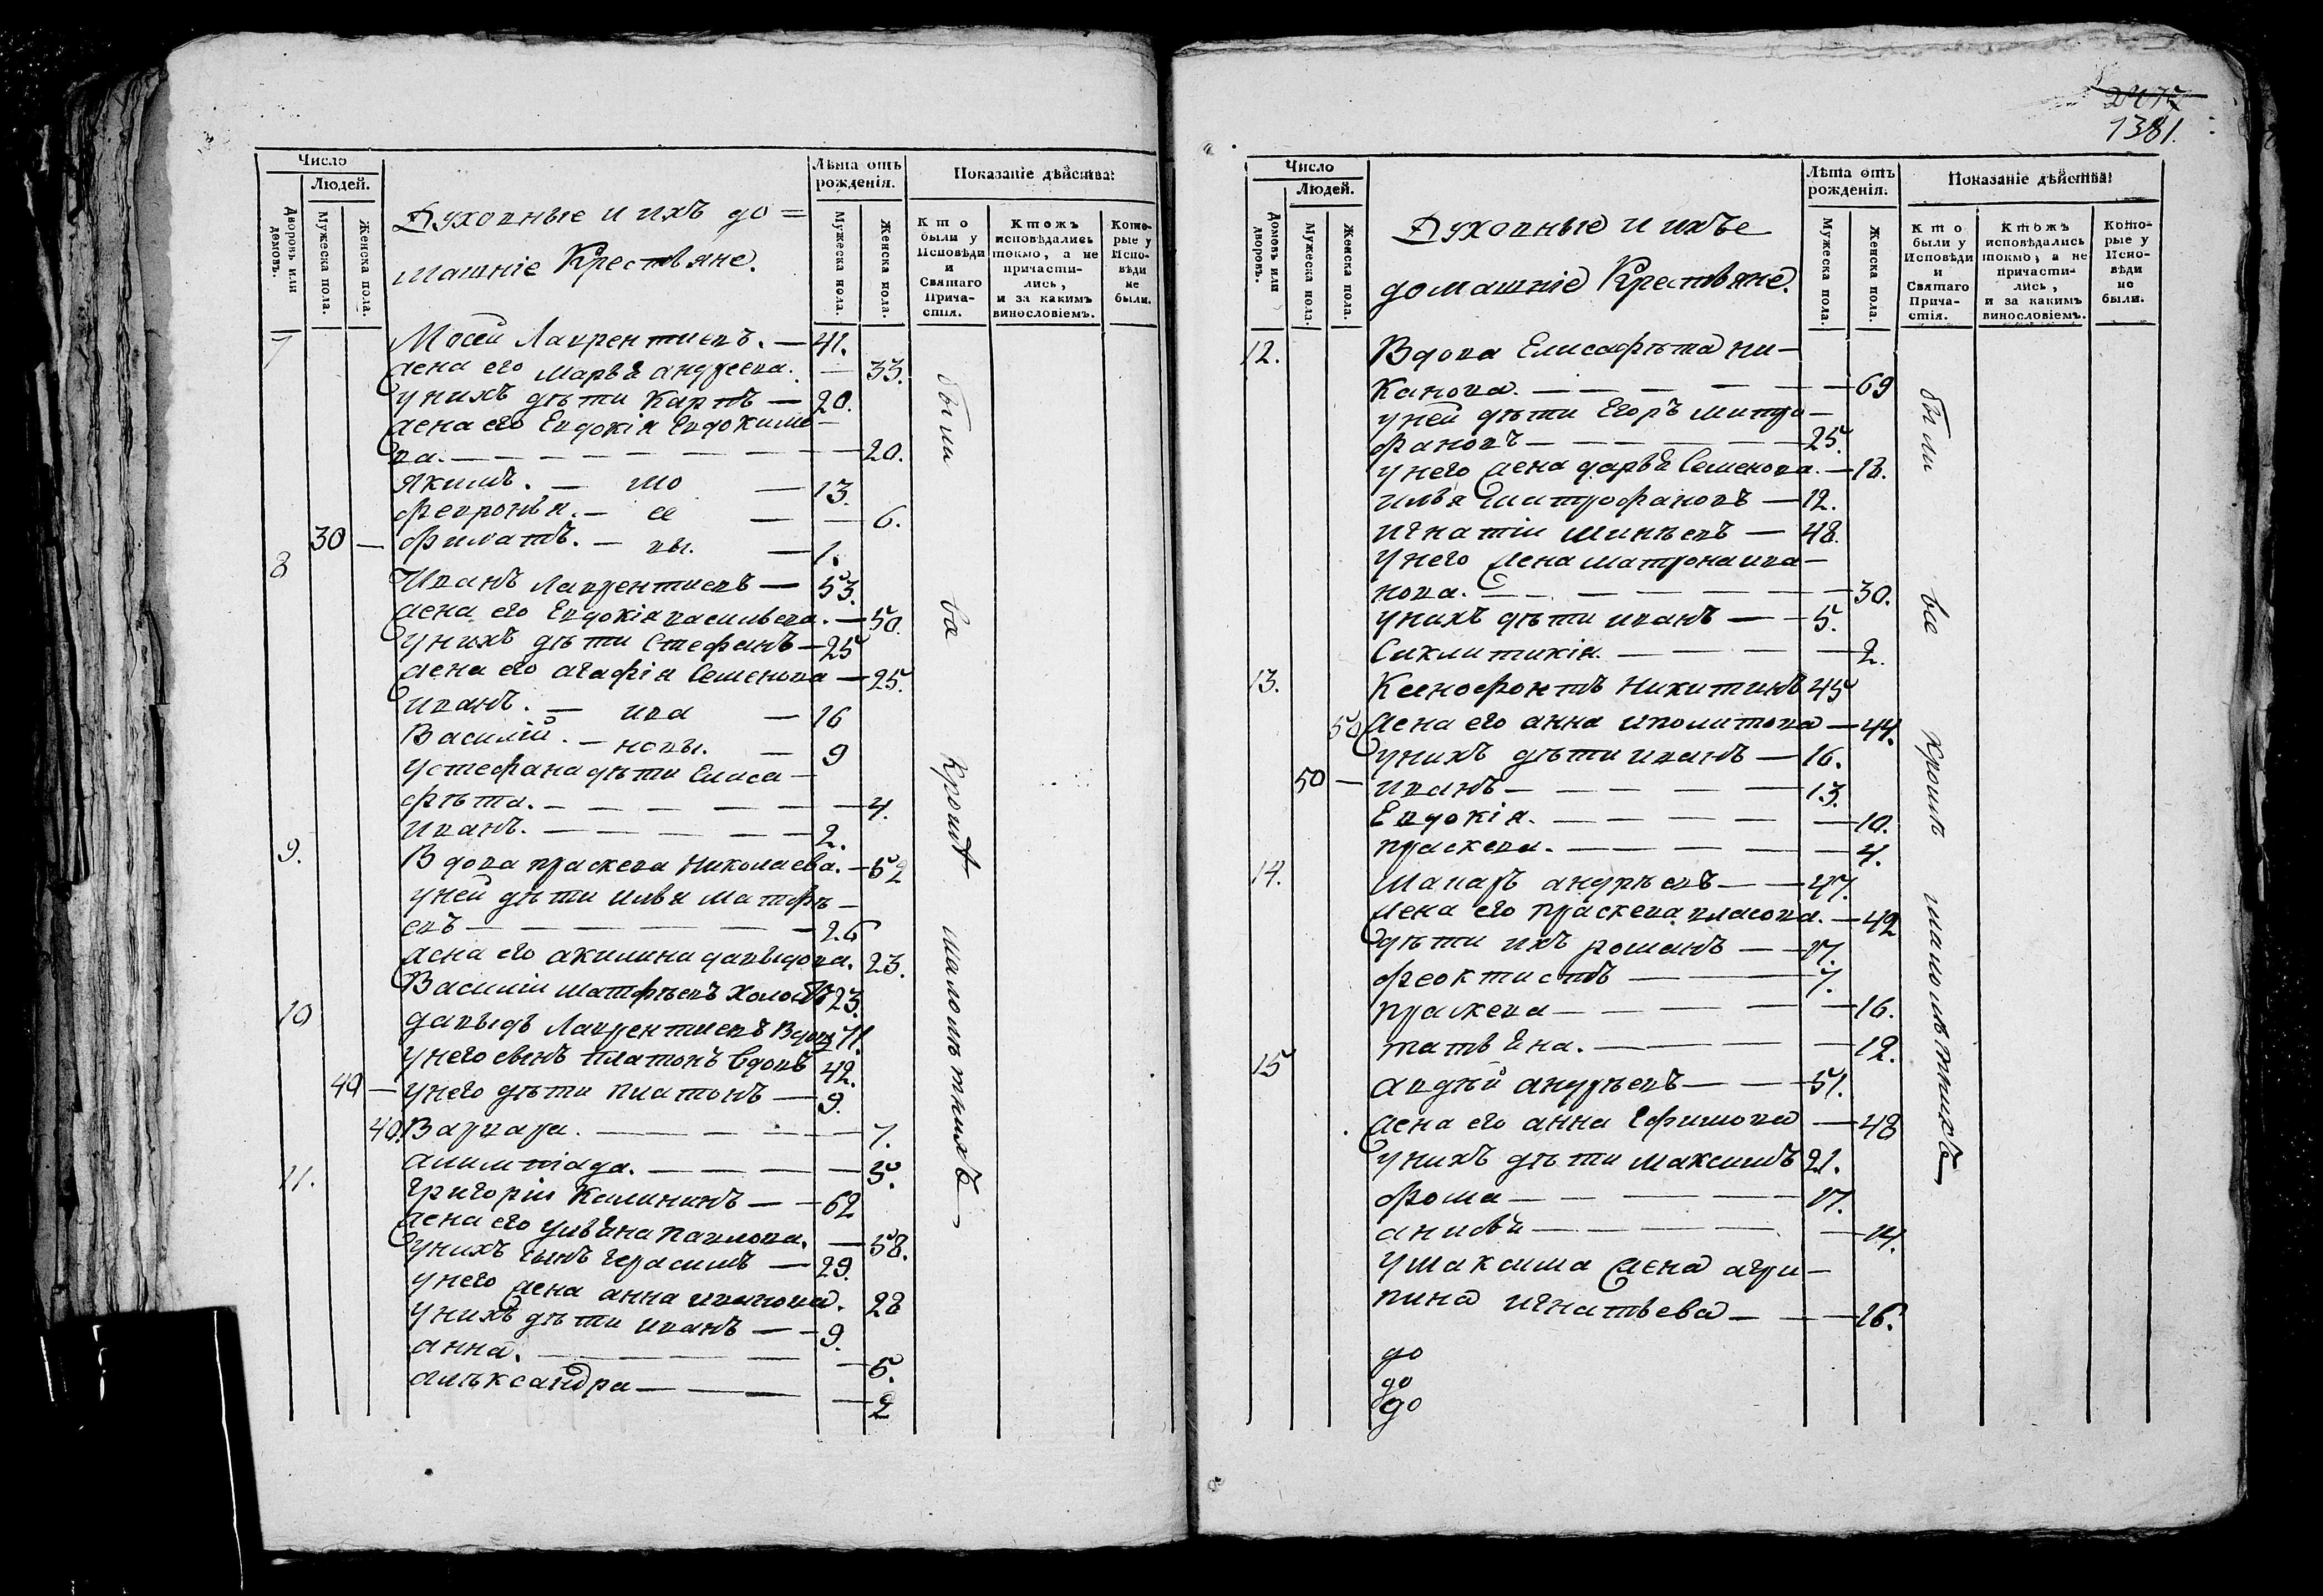 Число
Людей.
Дворовъ или домовъ.
Мужеска пола.
Женска пола.
Духовные и ихъ до=
машніе Крестьяне.
Лѣта отъ
рожденія.
Мужеска пола.
Женска пола.
Показаніе дѣйства:
Кто
были у
Исповѣди
и
Святаго
Прича-
стія.
Ктожъ
исповѣдались
токмо, а не
причасти-
лись,
и за какимъ
винословіемъ.
Кото-
рые у
Испо-
вѣди
не
были.
7 Моѵсей Лаврентиевъ. — 41.
Жена его Марья андреева. — 33.
у нихъ дѣти Карпъ — 20.
Жена его Евдокія Евдокимо—
ва. — 20.
Якимъ. — мо — 13.
Феврония. — се — 6.
30 — Филатъ. — вы. — 1.
8 Иванъ Лаврентиевъ — 53.
Жена его Евдокія васильева. — 50.
у нихъ дѣти Стефанъ — 25
Жена его агафія Семенова — 25.
иванъ. — ива — 16
Василій. — новы. — 9
у стефана дѣти Елиса—
фѣта. — 4.
иванъ. — 2.
9. Вдова праскева Николаева. — 52
у ней дѣти илья матфѣ—
евъ — 26
Жена его акилина давыдова. 23.
Василіи матфѣевъ холостъ 23.
10 давыдъ Лаврентиевъ Вдовъ 71.
у него сынъ платонъ Вдовъ 42.
49 — у него дѣти платонъ — 9.
40. Варвара. — 7.
алимпіада. — 5.
11. григоріи Калининъ — 62
Жена его ульяна павлова. — 58.
у нихъ сынъ герасимъ — 29.
у него жена анна иванова. 28
у нихъ дѣти иванъ — 9.
анна. — 5.
алѣксандра — 2
были все кромѣ малолѣтнихъ
2477
1381.
Число
Людей.
Домовъ или дворовъ.
Мужеска пола.
Женска пола.
Духовные и ихъ
домашніе Крестьяне.
Лѣта отъ
рожденія.
Мужеска пола.
Женска пола.
Показаніе дѣйства:
Кто
были у
Исповѣди
и
Святаго
Прича-
стія.
Ктожъ
исповѣдались
токмо, а не
причасти-
лись,
и за какимъ
винословіемъ.
Кото-
рые у
Испо-
вѣди
не
были.
12. Вдова Елисафѣта ни—
канова. — 69
у ней дѣти Егоръ митро—
фановъ — 25.
у него жена дарья Семенова. — 18.
илья митрофановъ — 12.
игнатіи минѣевъ — 48.
у него жена матрона ива—
нова. — 30.
у нихъ дѣти иванъ — 5.
Сиклитикія. — 2.
13. Ксенофонтъ никитинъ 45
50 Жена его анна иполитова — 44.
у нихъ дѣти иванъ — 16.
50 — иванъ — 13.
Евдокія. — 10.
праскева. — 4.
14. Макаръ андрѣевъ — 47.
Жена его праскева власова. — 42
дѣти ихъ романъ — 17.
феоктистъ — 7.
праскева — 16.
татьяна. — 12.
15 авдѣй андрѣевъ — 51.
Жена его анна Ефимова — 48
у нихъ дѣти максимъ 21.
фома — 17.
анисья — 14.
у максима жена агри—
пина игнатьева — 16.
до
до
до
были все кромѣ малолѣтнихъ